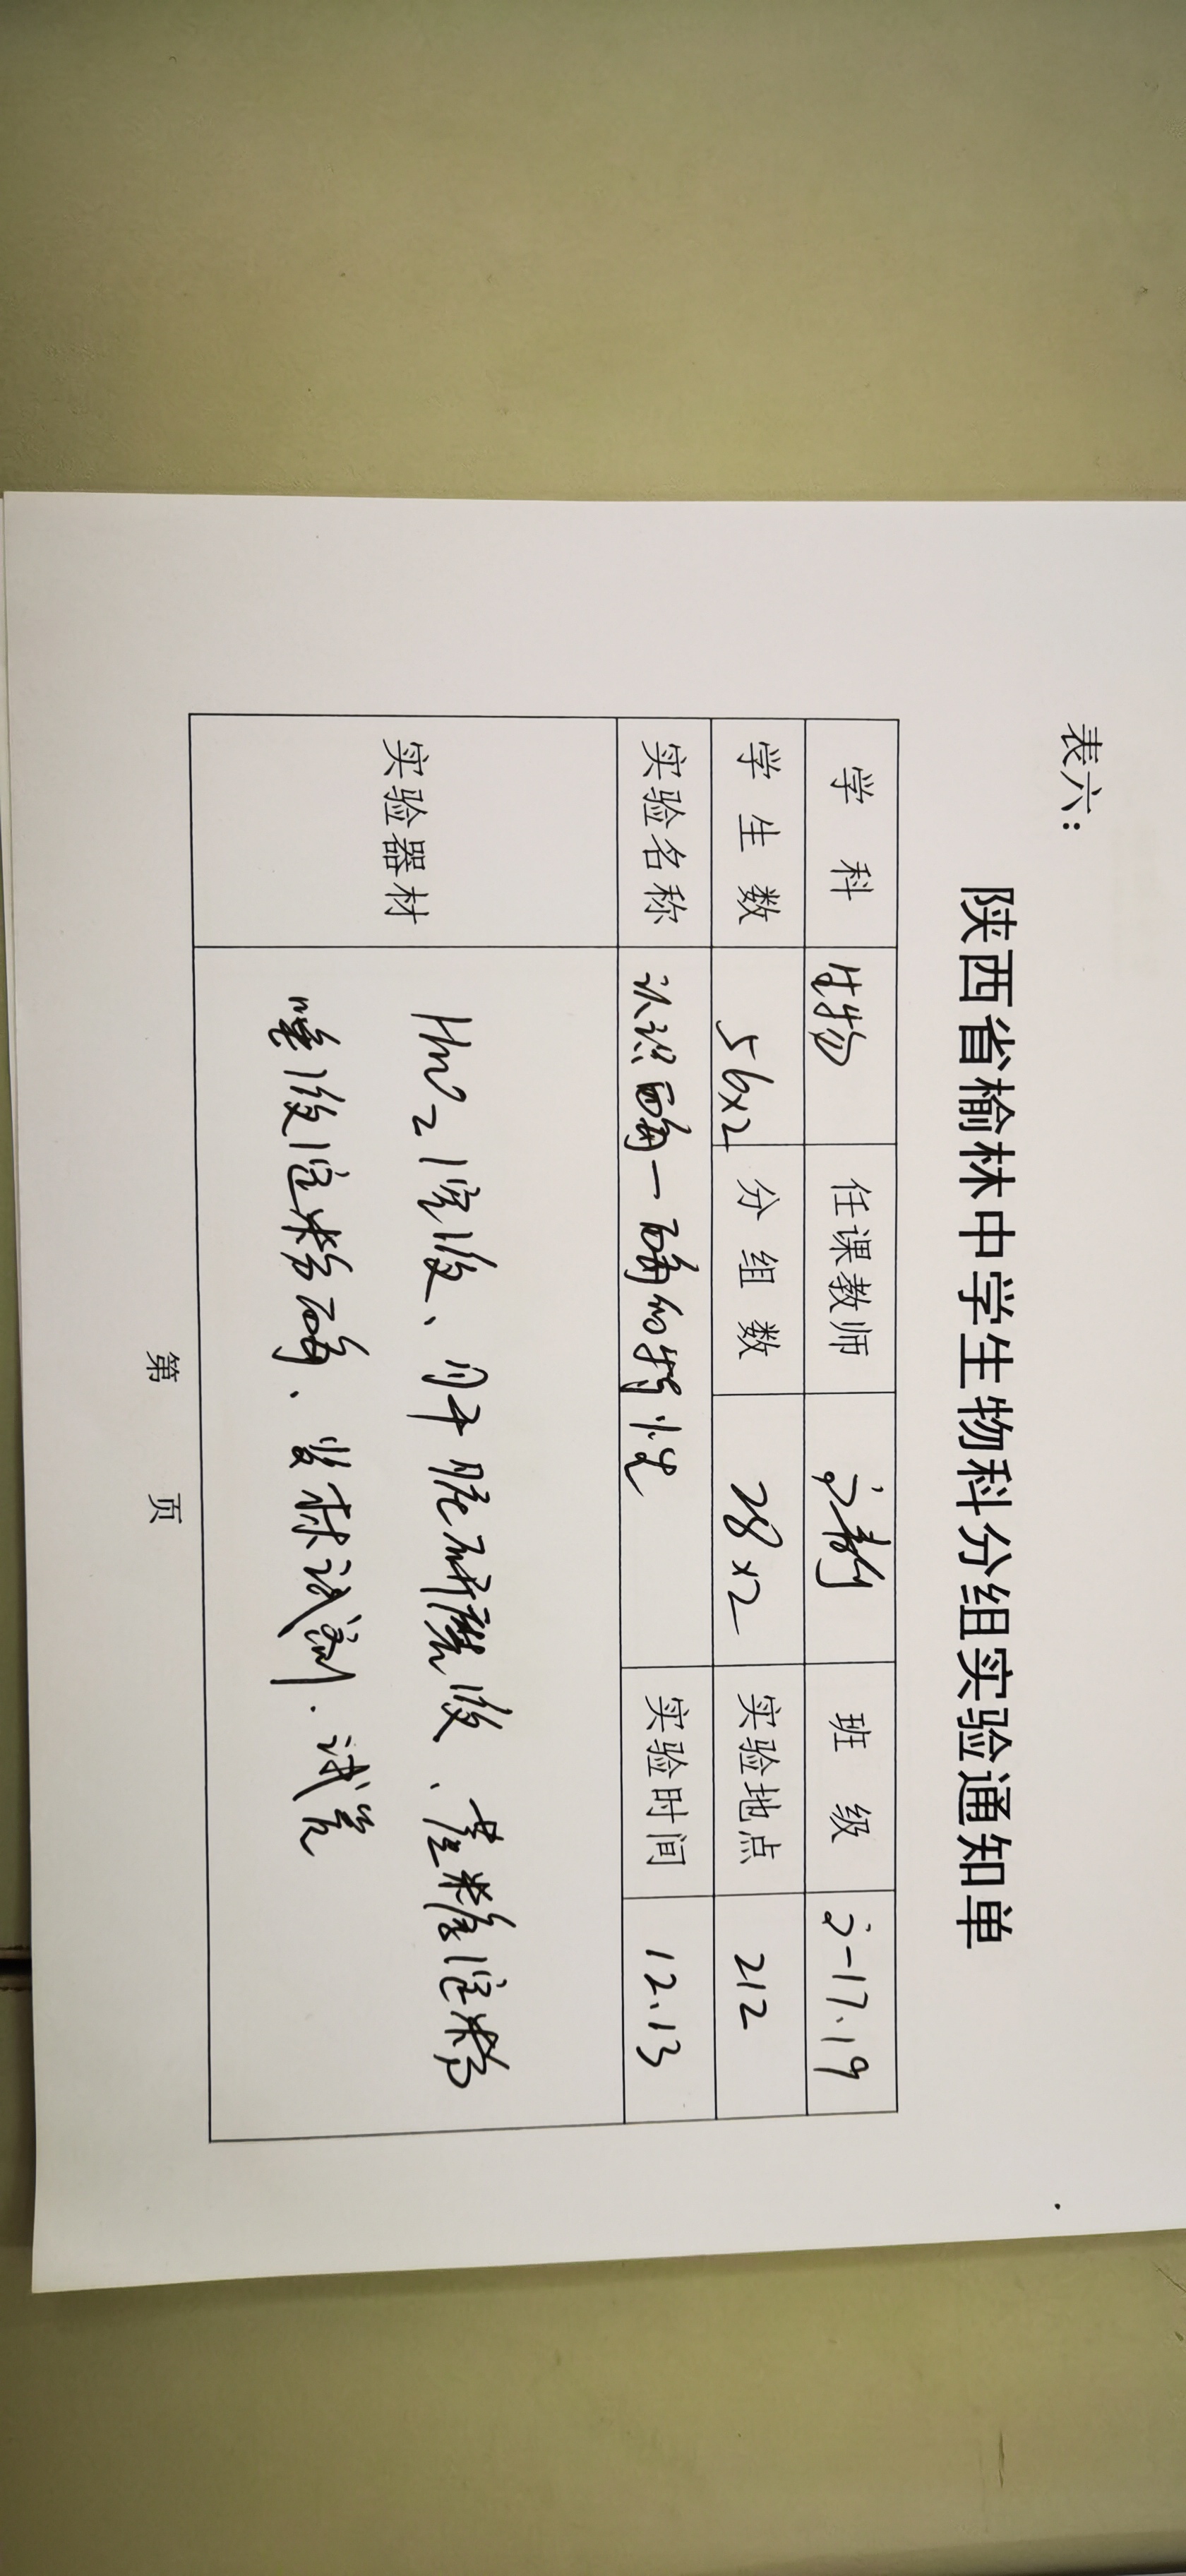 表六：
陕西省榆林中学生物科分组实验通知单
学 科 生物 任课教师 班 级 17.19
学 生 数 56×2 分 组 数 28×2 实验地点 212
实验名称 认识酶一酶的特性 实验时间 12.13
实验器材
溶液、肝脏研磨液、蔗糖淀粉
唾液淀粉酶、斐林试剂.试管
第 页